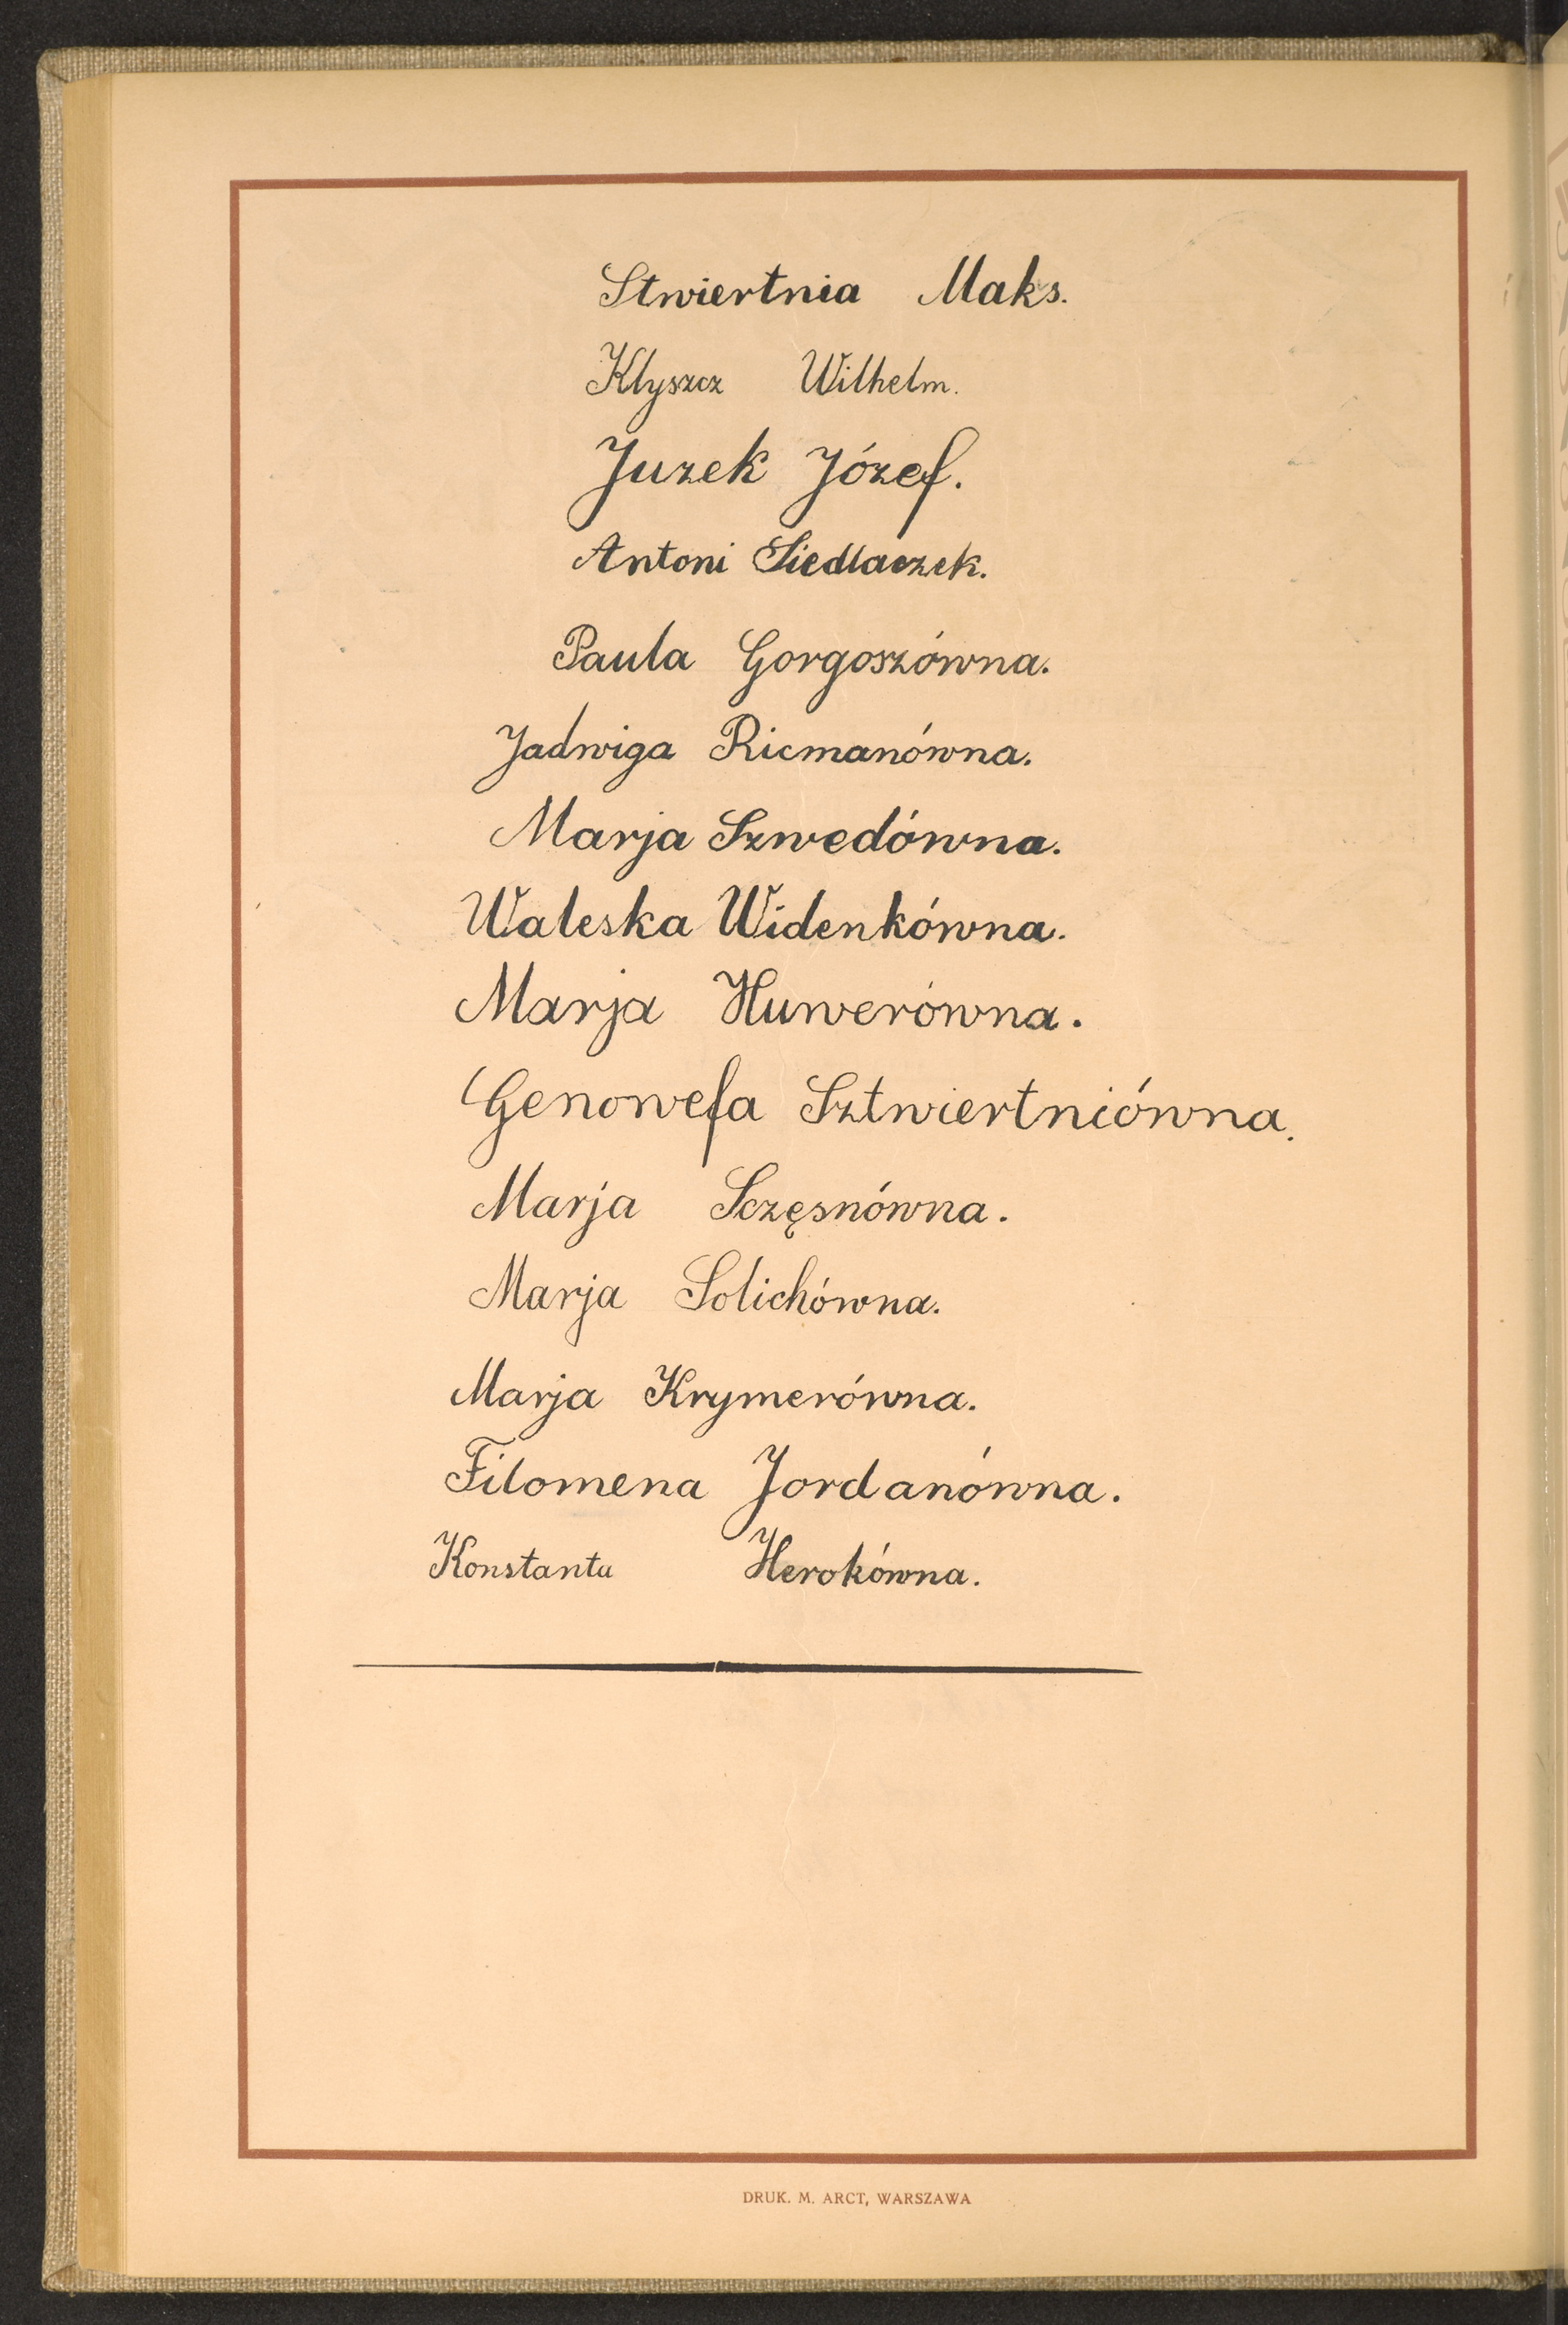 Stwiertnia Maks.
Klyszcz Wilhelm.
Juzek Józef.
Antoni Siedlaczek.
Paula Gorgoszówna.
Jadwiga Ricmanówna.
Marja Szwedówna.
Waleska Widenkówna.
Marja Huwerówna.
Genowefa Sztwiertniówna.
Marja Sczęsnówna.
Marja Solichówna.
Marja Krymerówna.
Filomena Jordanówna.
Konstanta Herokówna.
DRUK. M. ARCT, WARSZAWA